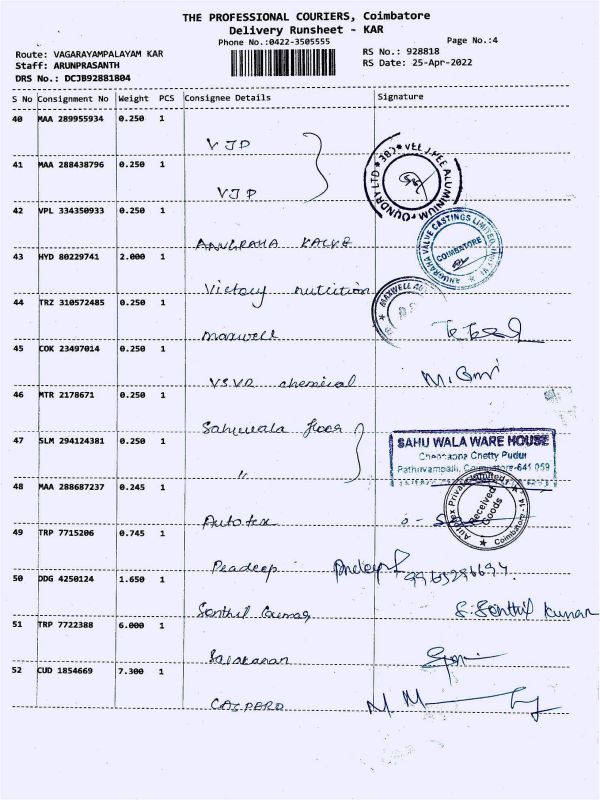 THE PROFESSIONAL COURIERS, Coimbatore
Delivery Runsheet - KAR
Phone No.:0422-3505555
Page No.:4
Route: VAGARAYAMPALAYAM KAR
RS No.: 928818
Staff: ARUNPRASANTH
RS Date: 25-Apr-2022
DRS No.: DCJB92881804
S No Consignment No Weight PCS Consignee Details Signature
40 MAA 289955934 0.250 1
VJP
41 MAA 288438796 0.250 1
VJP
VEE JPEE ALUMINIUM FOUNDRY LTD
42 VPL 334350933 0.250 1
ANUGRAHA VALVE
ANUGRAHA VALVE CASTINGS LIMITED
COIMBATORE
43 HYD 80229741 2.000 1
Victory nutrition
44 TRZ 310572485 0.250 1
maxwell
MAXWELL
45 COK 23497014 0.250 1
chemical
46 MTR 2178671 0.250 1
Sahuwala
47 SLM 294124381 0.250 1
"
SAHU WALA WARE HOUSE
Chennappa Chetty Pudur
Coimbatore-641 059
48 MAA 288687237 0.245 1
Autotex
Private Limited
Received
Goods
Coimbatore - 14
49 TRP 7715206 0.745 1
Pradeep
50 DDG 4250124 1.650 1
Senthil Kumar
S. Senthil kumar
51 TRP 7722388 6.000 1
52 CUD 1854669 7.300 1
CAIPARO